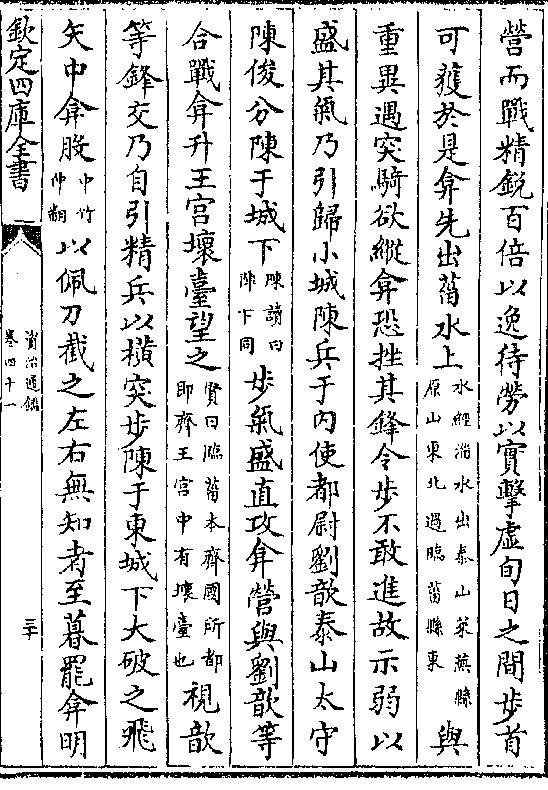 營而戰精銳百倍以逸待勞以實擊虛旬日之間步首
可獲於是弇先出菑水上水經淄水出泰山萊蕪縣原山東北過臨菑縣東與
重異遇突騎欲縱弇恐挫其鋒令步不敢進故示弱以
盛其氣乃引歸小城陳兵于内使都尉劉歆泰山太守
陳俊分陳于城下陳讀曰陣下同步氣盛直攻弇營與劉歆等
合戰弇升王宫壞臺望之賢曰臨菑本齊國所都即齊王宫中有壞臺也視歆
等鋒交乃自引精兵以横突步陳于東城下大破之飛
矢中弇股中竹仲翻以佩刀截之左右無知者至暮罷弇明
欽定四庫全書
資治通鑑
卷四十一
三十